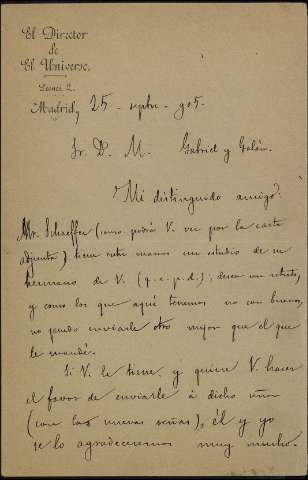 El Director
de
El Universo.
2.
Madrid, 25 - sepbre - 905.
Sr. D. M. Gabriel y Galán.
Mi distinguido amigo:
Mr. Schaeffer (como podrá V. ver por la carta
adjunta) tiene entre manos un estudio de su
hermano de V. (q. e. p. d.); desea un retrato,
y como los que aquí tenemos no son buenos,
no puedo enviarle otro mejor que el que
le mandé.
Si V. le tiene, y quiere V. hacer
el favor de enviarle á dicho señor
(con las nuevas señas), él y yo
se lo agradeceremos muy mucho.